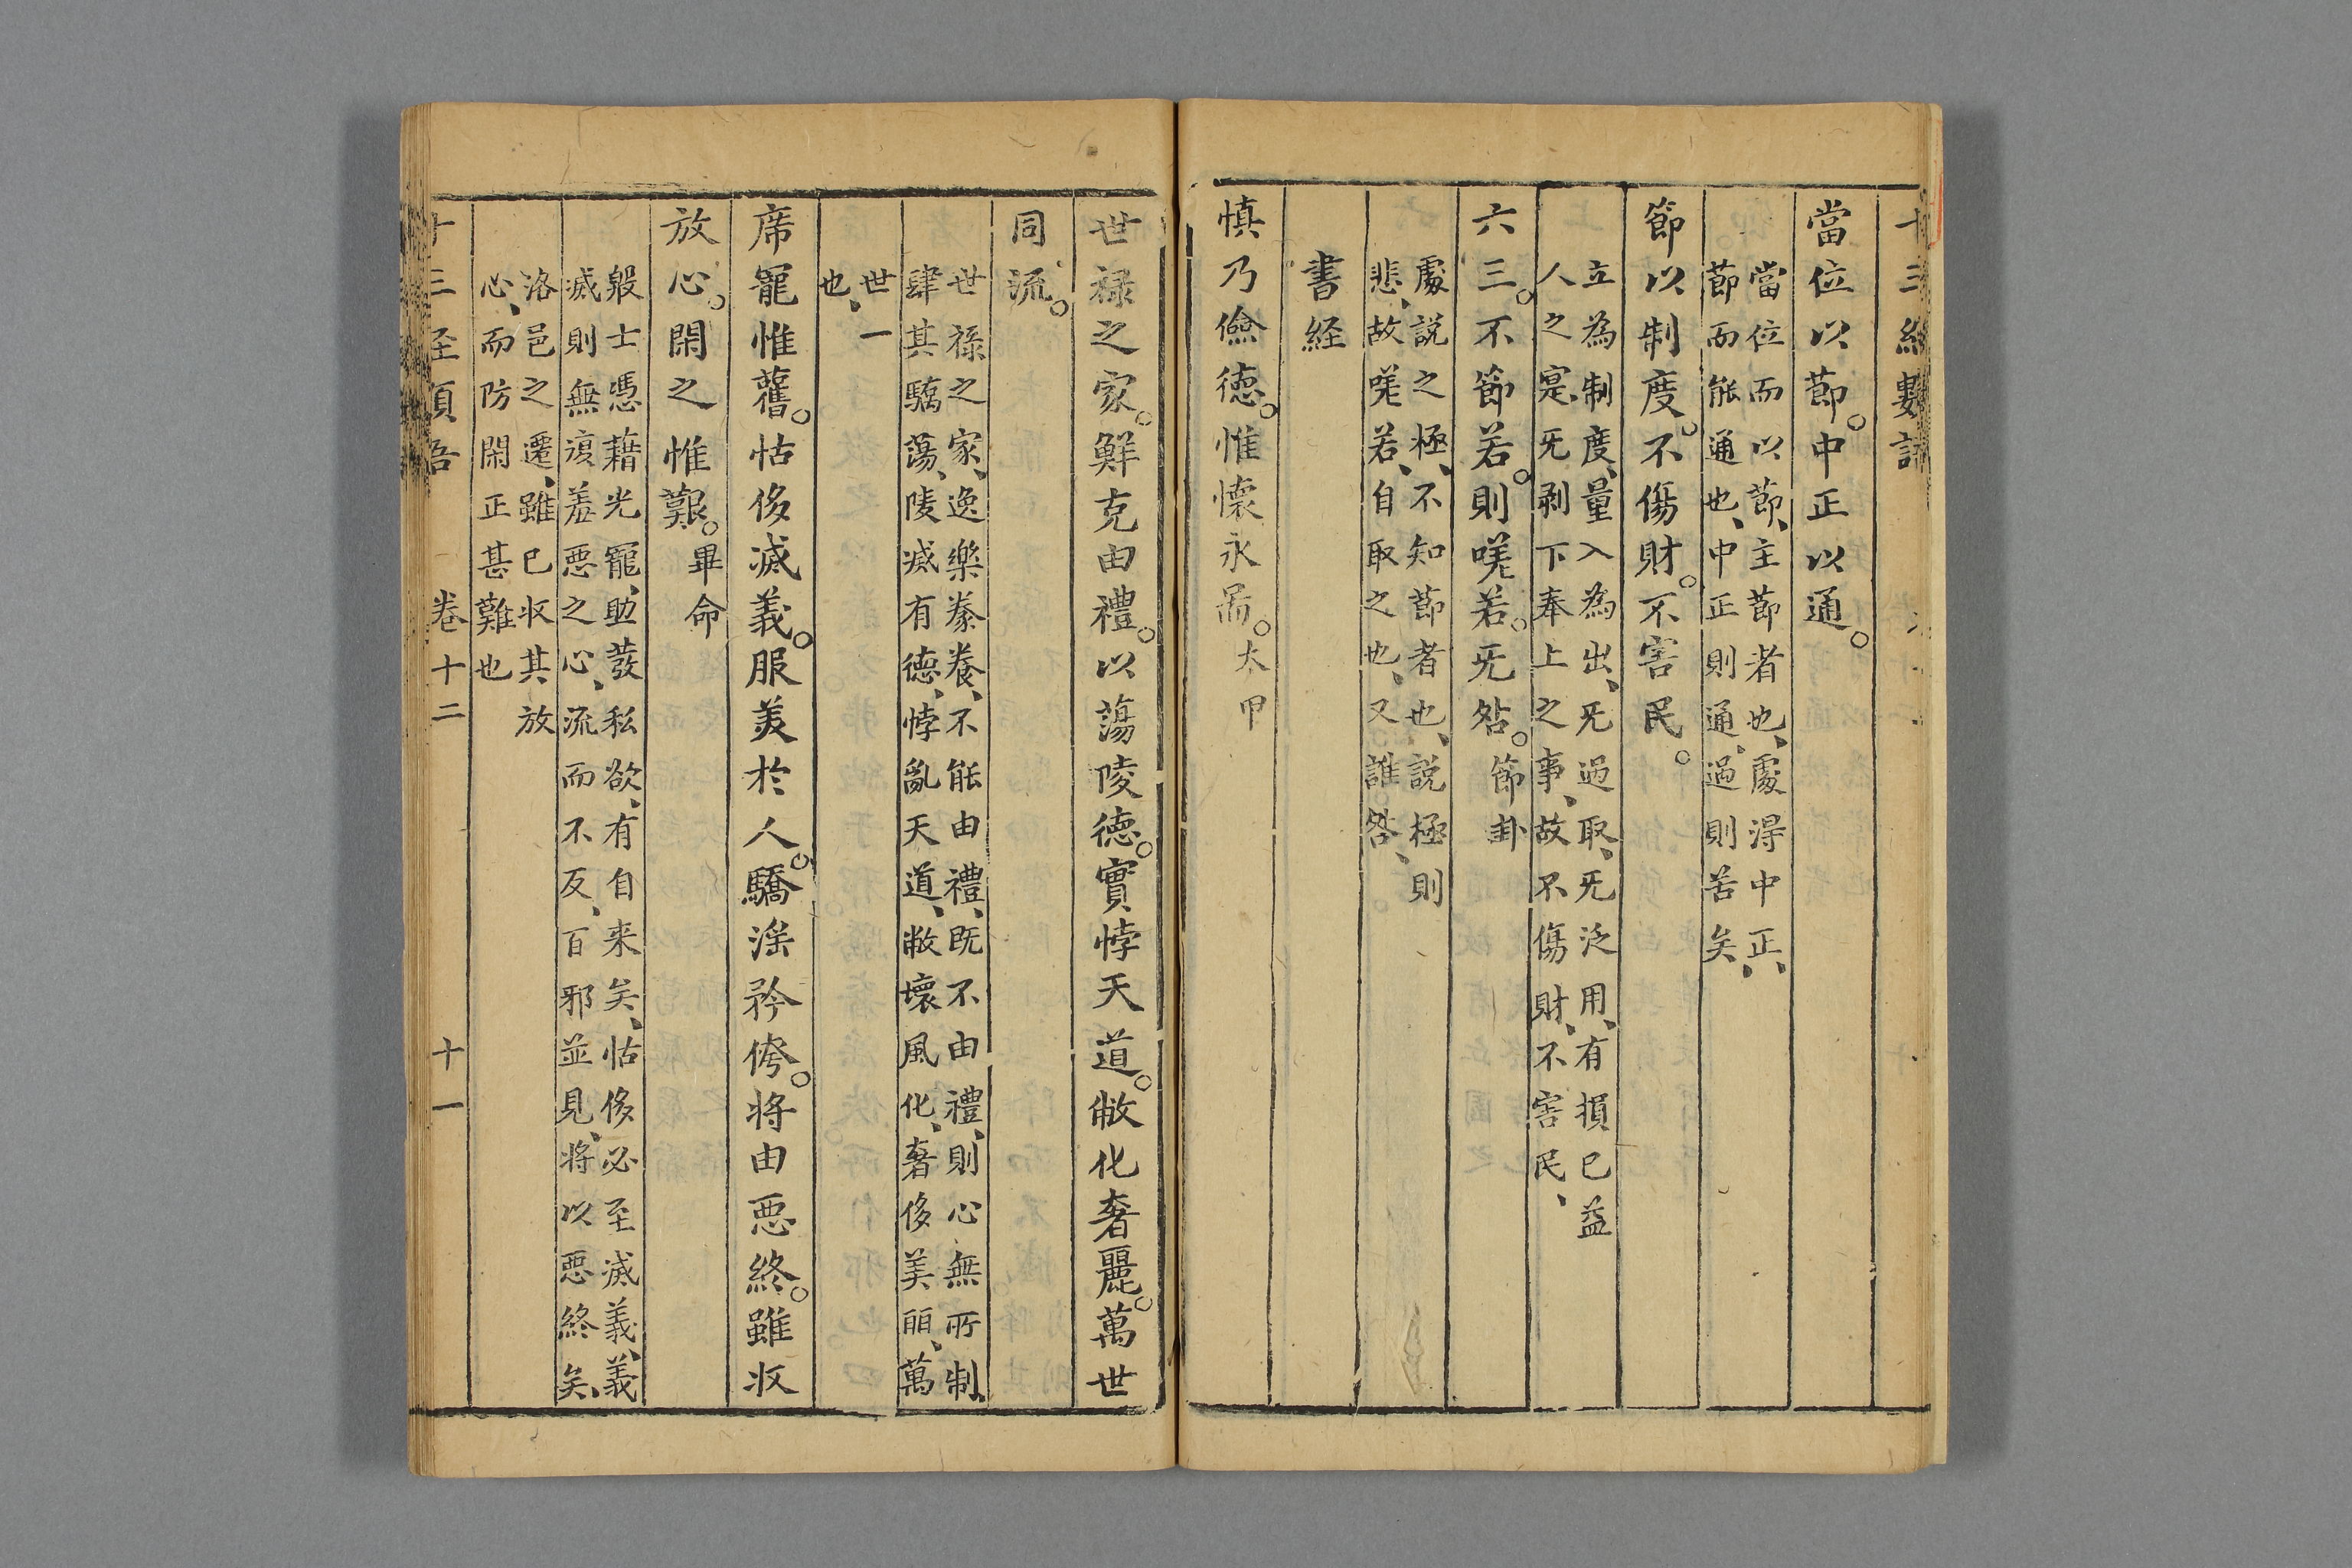 當位以節。中正以通。
當位而以節、主節者也、處淂中正、
節而能通也、中正則通、過則苦矣
節以制度。不傷財。不害民。
立為制度、量入為出、旡過取、旡泛用、有損已益
人之寔、旡剥下奉上之事、故不傷財、不害民、
六三。不節若。則嘆若。旡咎。節卦
處説之極、不知節者也、説極則
悲、故嘆若、自取之也、又誰咎、
書経
慎乃儉徳。惟懷永啚。太甲
世禄之家。鮮克由禮。以蕩陵徳。實悖天道。敝化奢麗。萬世
同流。
世禄之家、逸樂豢養、不能由禮、既不由禮、則心無所制、
肆其驕蕩、陵滅有徳、悖亂天道、敝壞風化、奢侈美丽、萬
世一
也、
席寵惟舊。怙侈滅義。服美於人。驕滛矜侉。将由悪終。雖収
放心。閑之惟艱。畢命
殷士憑藉光寵、助發私欲、有自来矣、怙侈必至滅義、義
滅則無復羞悪之心、流而不反、百邪並見、将以悪終矣、
洛邑之遷、雖已収其放
心、而防閑正甚難也
卷十二
十一